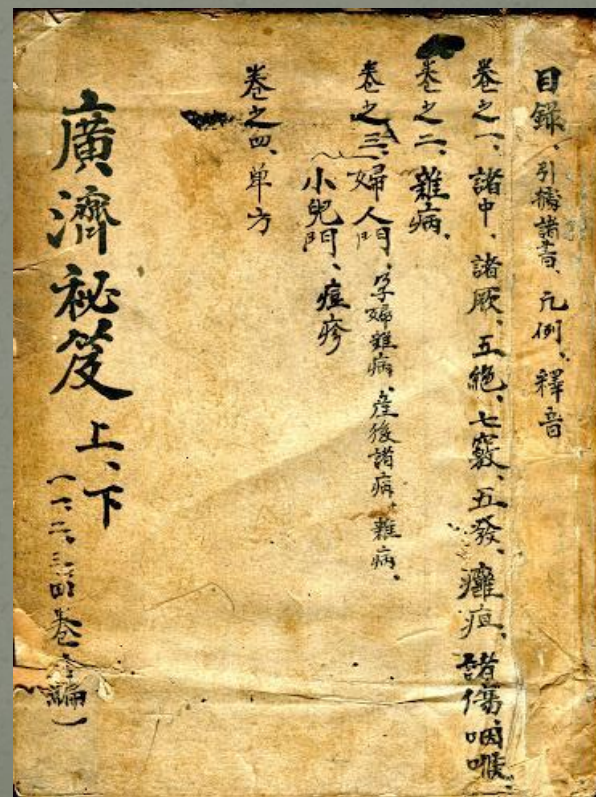 目錄、引據諸書、凡例、釋音
卷之一、諸中、諸厥、五絶、七竅、五發、癰疽、諸傷咽喉、
卷之二、雜病、
卷之三、婦人門、孕婦雜病、産後諸病、雜病、
小兒門、痘疹
卷之四、単方
廣濟祕笈 上、下
(一、二、三、四卷全編)